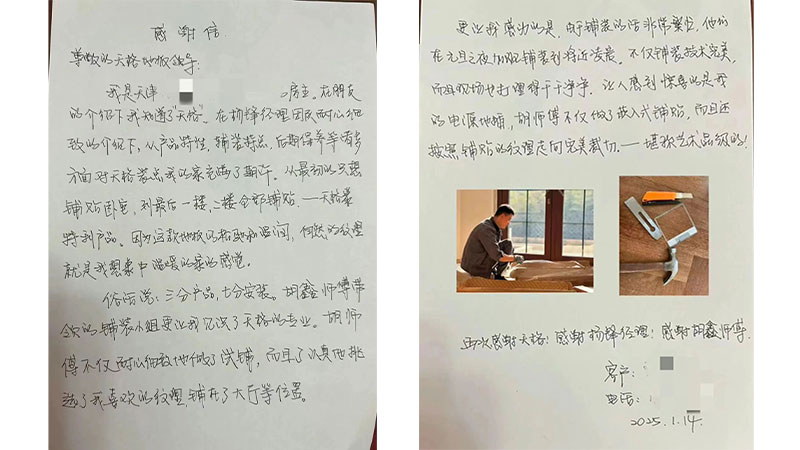 感谢信
尊敬的天格地板领导:
我是天津 房主。在朋友
的介绍下我知道了"天格"。在杨锋经理因及耐心细
致的介绍下,从产品特性,铺装特点,后期保养等诸多
方面对天格装点我的家充满了期许。从最初的只想
铺贴卧室,到最后一楼、二楼全部铺贴——天格豪
特利产品。因为这款地板的柚油和温润,自然的纹理
就是我想要中温暖的家的感觉。
俗话说:三分产品,七分安装。胡鑫师傅带
领的铺装小组更让我见识了天格的专业。胡师
傅不仅耐心细致地做了试铺,而且了认真地挑
选了我喜欢的纹理,铺在了大厅等位置。
更让我感动的是,由于铺装的活非常繁忙,他们
在元旦之夜加班铺装到将近凌晨。不仅铺装技术完美,
而且现场也打理得干干净净。让人感到惊喜的是我
的电源地插,胡师傅不仅做了嵌入式铺贴,而且还
按照铺贴的纹理走向完美裁切。——堪称艺术品级的!
再次感谢天格!感谢杨锋经理!感谢胡鑫师傅.
客户:
电话:
2025.1.14.